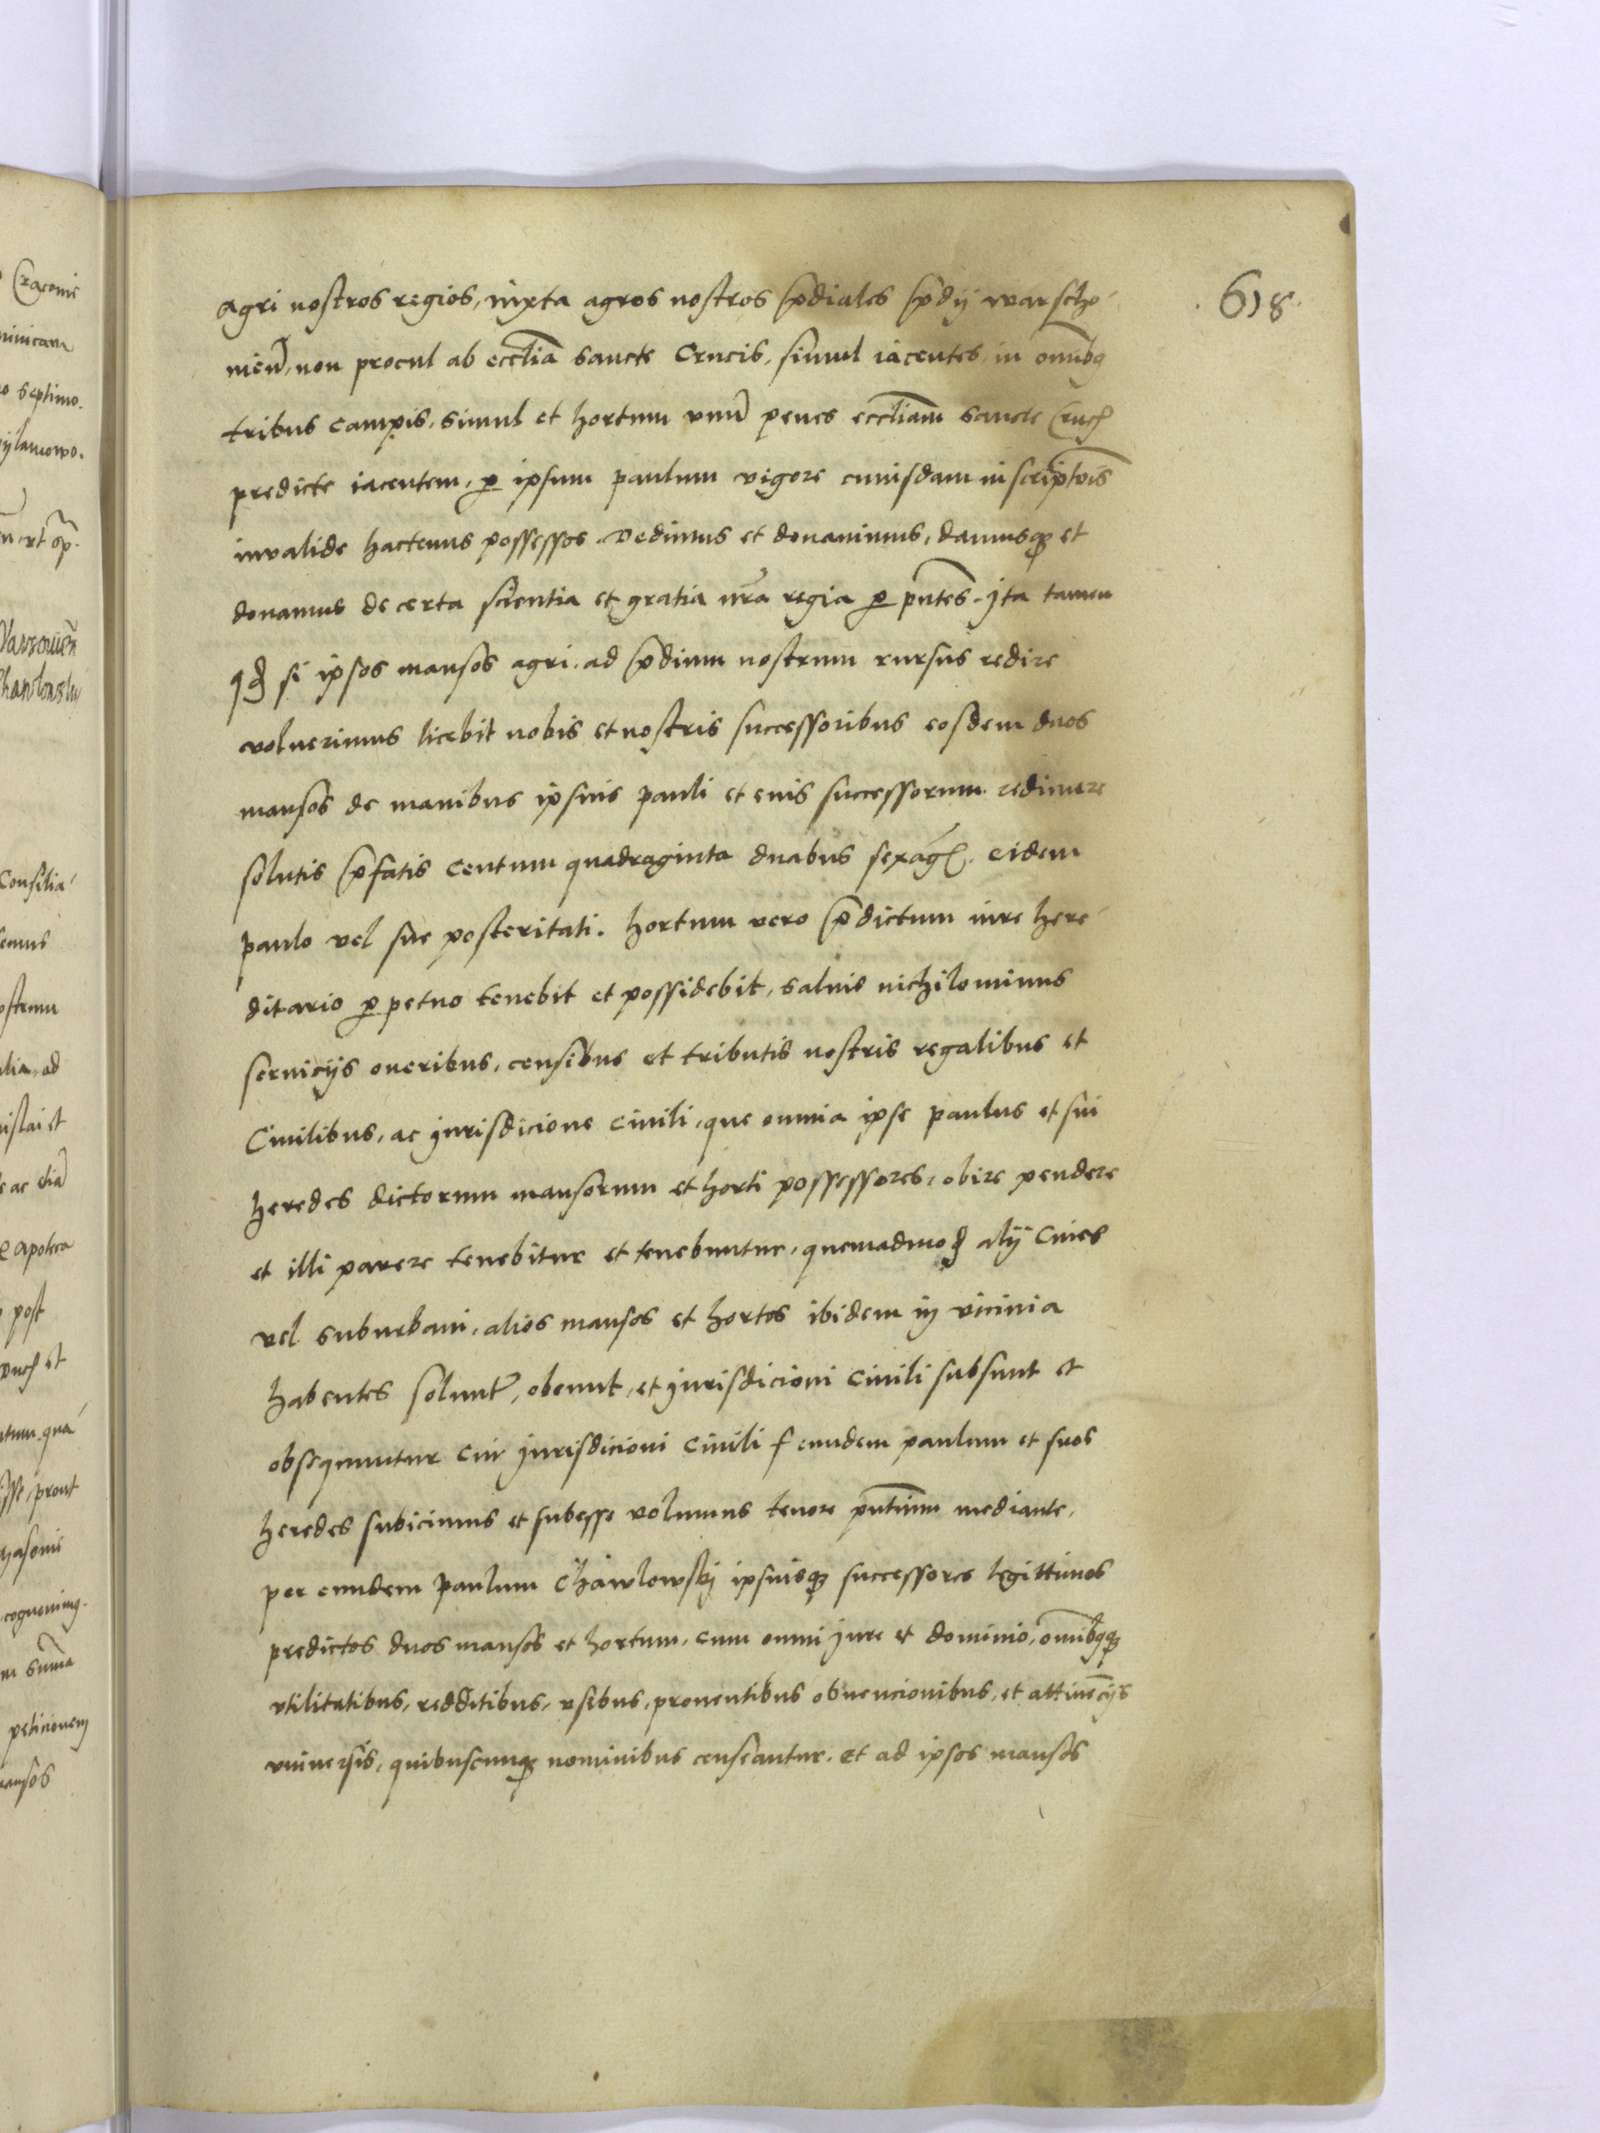 618.
agri nostros regios, iuxta agros nostros p̄diales p̄dij warscho-
nien̄, non procul ab eccl̄ia sancte Crucis, simul iacentes in om̄ibq
tribus campis, simul et hortum vnū penes eccl̄iam sancte Cruc̄
predicte iacentem, ꝑ ipsum paulum vigore cuiusdam inscript̄ois
invalide hactenus possessos Dedimus et donauimus, damusqꝫ et
donamus de certa scientia et gratia nr̄a regia ꝑ pn̄tes. Ita tamen
qđ si ipsos mansos agri ad p̄dium nostrum rursus redire
voluerimus licebit nobis et nostris successoribus eosdem duos
mansos de manibus ipsius pauli et eius successorum redimere
solutis p̄fatis centum quadraginta duabus sexaḡ. eidem
paulo vel sue posteritati. hortum vero p̄dictum iure here-
ditario ꝑpetuo tenebit et possidebit, saluis nichilominus
seruicijs oneribus, censibus et tributis nostris regalibus et
Ciuilibus, ac Jurisdicione Ciuili, que omnia ipse paulus et sui
heredes dictorum mansorum et horti possessores, obire pendere
et illi parere tenebitur et tenebuntur, quemadmođ alij Ciues
vel suburbani, alios mansos et hortos ibidem in vicinia
habentes soluunt̄, obeunt, et Jurisdicioni Ciuili subsunt et
obsequuntur cui Jurisdicioni Ciuili eundem paulum et suos
heredes subicimus et subesse volumus tenore pn̄tium mediante,
per eundem paulum Chawlowski ipsiusqꝫ successores legittimos
predictos duos mansos et hortum, cum omni Jure et dominio, om̄ibqqꝫ
vtilitatibus, redditibus, vsibus, prouentibus obuencionibus, et attinēcijs
vniuersis, quibuscunqꝫ nominibus censeantur. et ad ipsos mansos